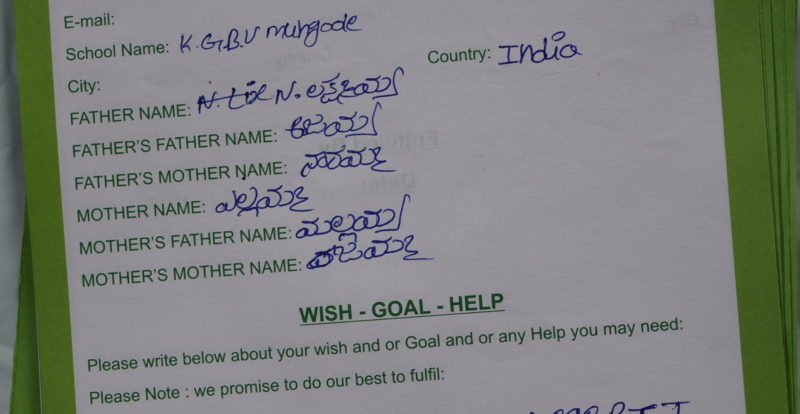 E-mail:
School Name: K.G.B.V mungode
Country: India
City:
FATHER NAME: N. ಲಕ್ಷ್ಮಯ್ಯ
FATHER'S FATHER NAME: ಅಜಯ್ಯ
FATHER'S MOTHER NAME: ನಾರಮ್ಮ
MOTHER NAME: ಎಲ್ಲಮ್ಮ
MOTHER'S FATHER NAME: ಮಲ್ಲಯ್ಯ
MOTHER'S MOTHER NAME:
WISH - GOAL - HELP
Please write below about your wish and or Goal and or any Help you may need:
Please Note : we promise to do our best to fulfil: